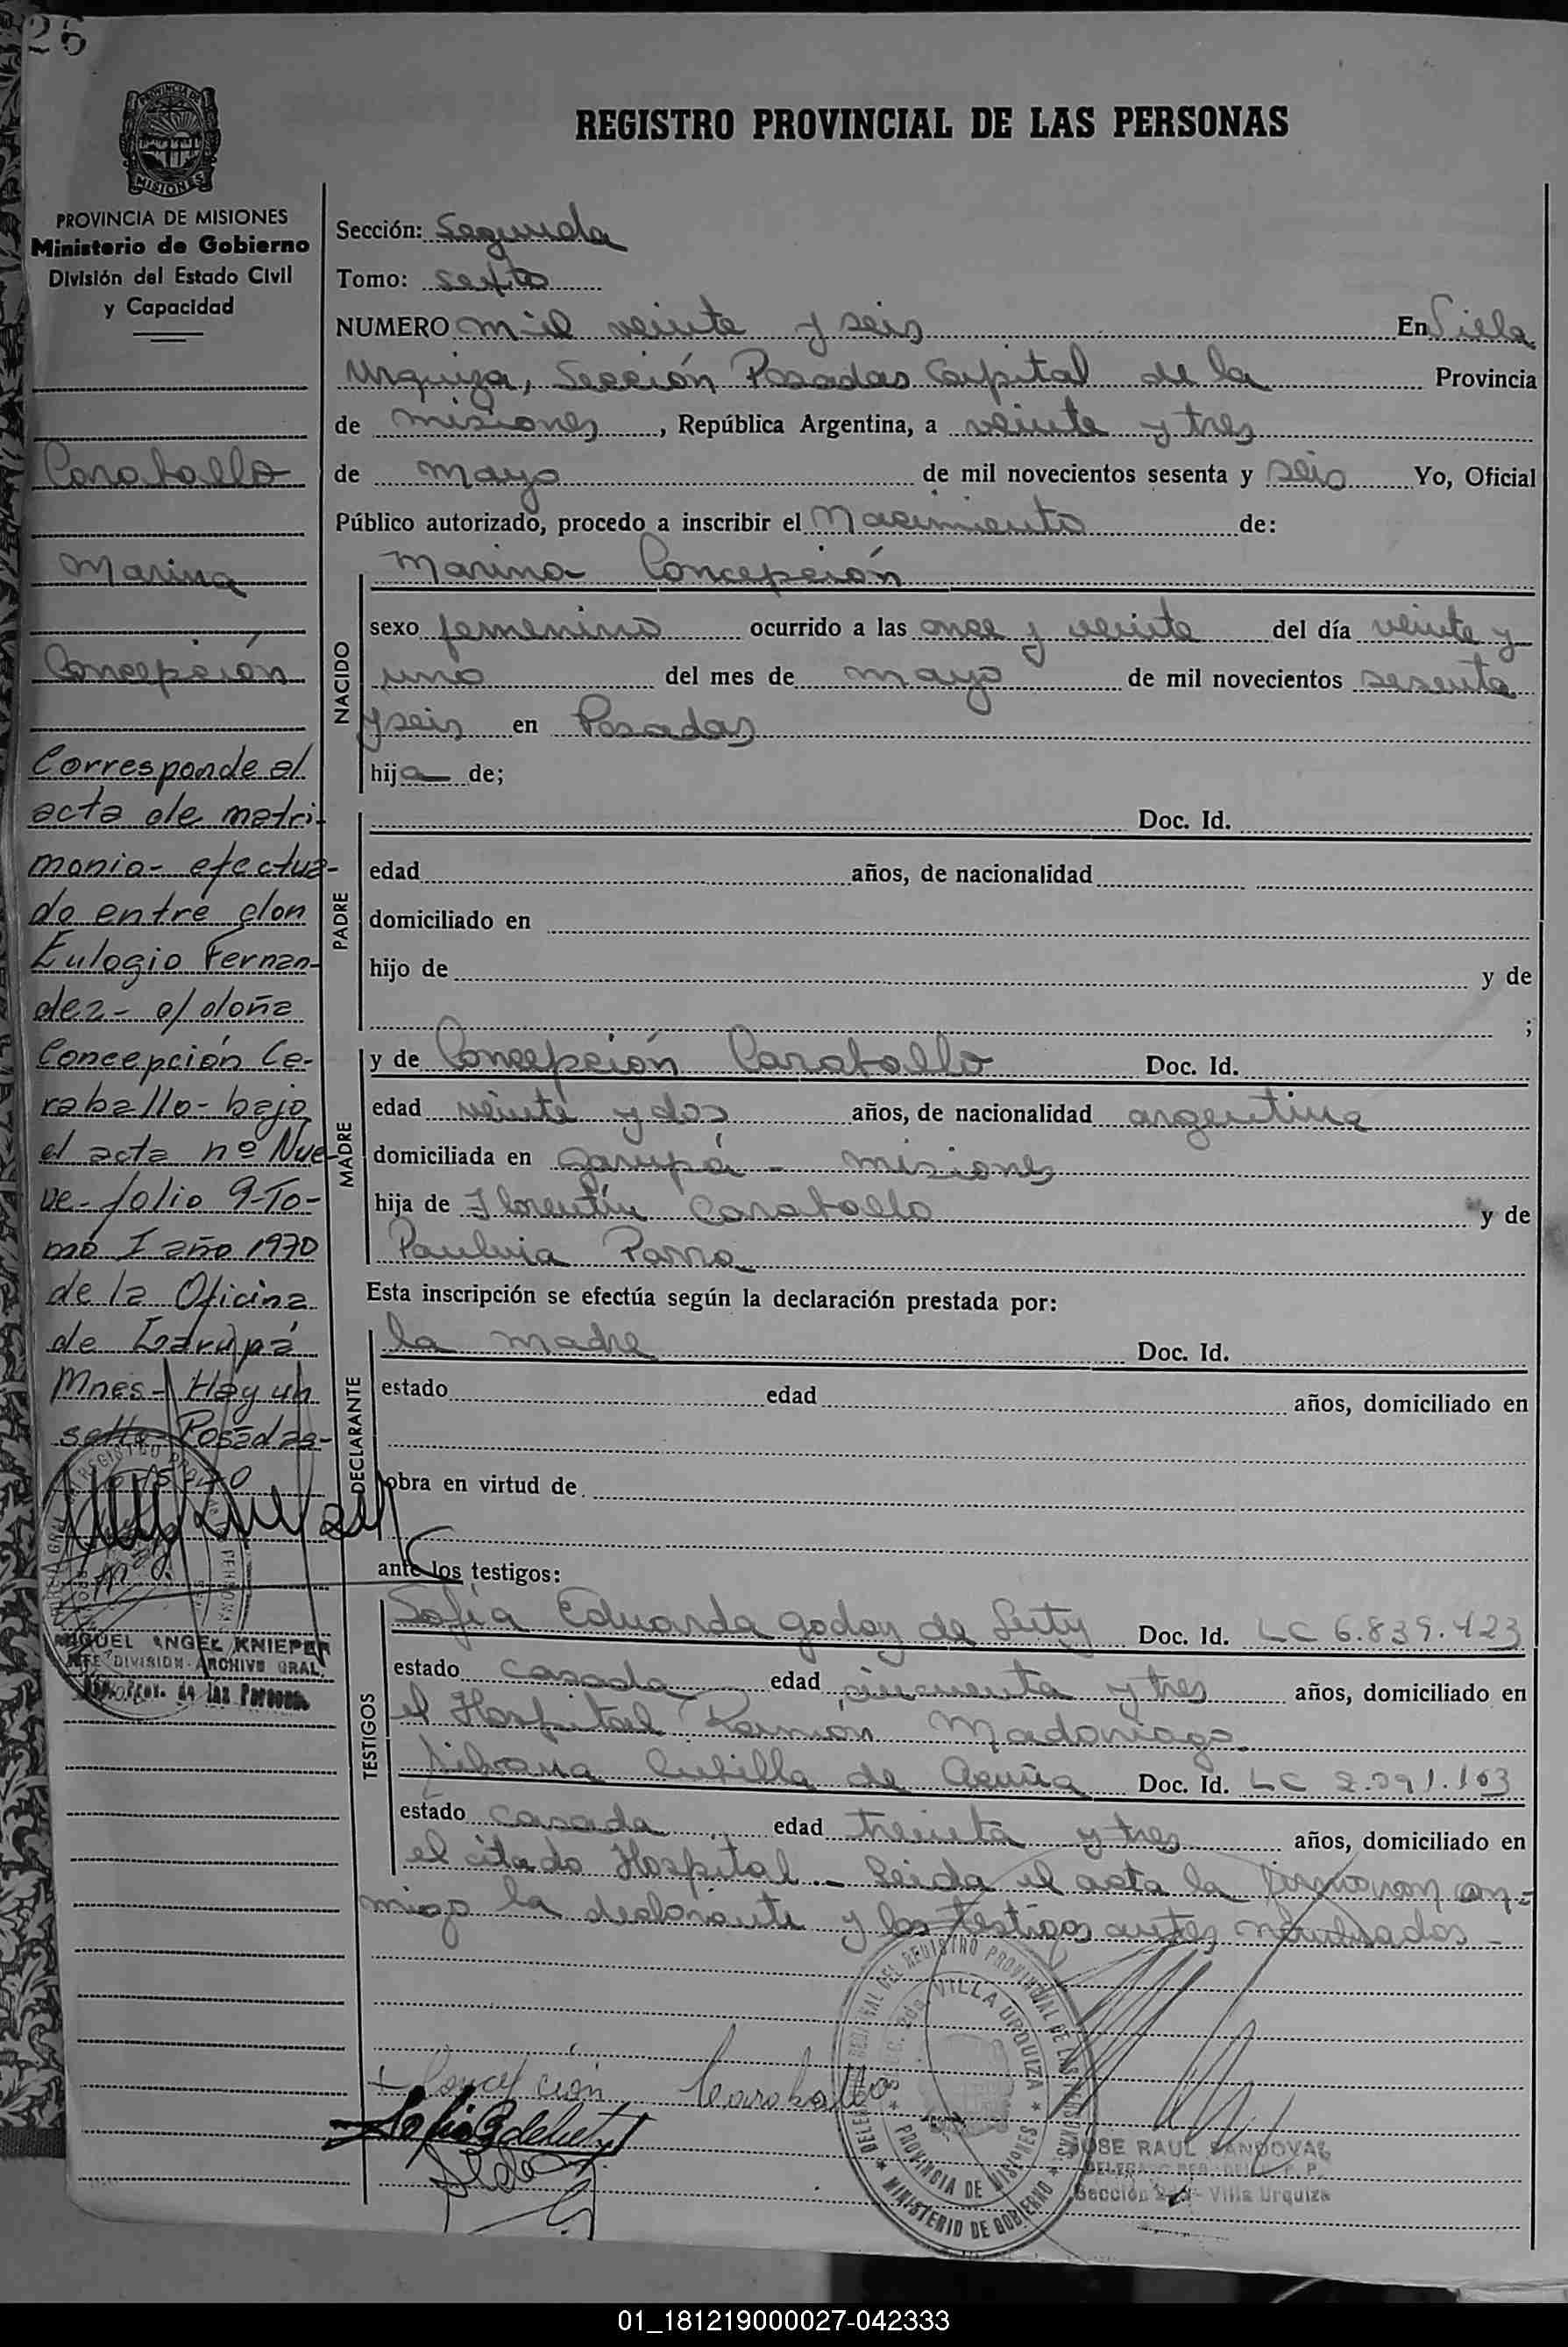 26
REGISTRO PROVINCIAL DE LAS PERSONAS
PROVINCIA DE
MISIONES
PROVINCIA DE MISIONES
Ministerio de Gobierno
División del Estado Civil
y Capacidad
Caraballo
Marina
Concepción
Corresponde al
acta de matri-
monio- efectua-
do entre don
Eulogio Fernan-
dez- c/ doña
Concepción Ca-
raballo- bajo
el acta nº Nue-
ve- folio 9-To-
mo I año 1970
de la Oficina
de Garupá
Mnes- Hay un
sello Posadas-
MIGUEL ANGEL KNIEPER
JEFE DIVISION ARCHIVO GRAL.
de las Personas
Sección: Segunda
Tomo: sexto
NUMERO mil veinte y seis En Villa
Urquiza, Sección Posadas Capital de la Provincia
de misiones, República Argentina, a veinte y tres
de mayo de mil novecientos sesenta y seis Yo, Oficial
Público autorizado, procedo a inscribir el Nacimiento de:
NACIDO
Marina Concepción
sexo femenino ocurrido a las once y veinte del día veinte y
uno del mes de mayo de mil novecientos sesenta
y seis en Posadas
hija de;
PADRE
Doc. Id.
edad años, de nacionalidad
domiciliado en
hijo de y de
;
MADRE
y de Concepción Caraballo Doc. Id.
edad veinte y dos años, de nacionalidad argentina
domiciliada en Garupá - misiones
hija de Florentín Caraballo y de
Parra
Esta inscripción se efectúa según la declaración prestada por:
DECLARANTE
la madre Doc. Id.
estado edad años, domiciliado en
obra en virtud de
ante los testigos:
TESTIGOS
Sofía Eduarda Godoy de Doc. Id. LC 6.839.423
estado casada edad cincuenta y tres años, domiciliado en
el Hospital Ramón Madariaga.
de Acuña Doc. Id. LC 2.391.103
estado casada edad treinta y tres años, domiciliado en
el citado Hospital.- Leida el acta la firmaron con-
migo la declarante y los testigos antes nombrados -
Concepción Caraballo
DELEGACION REGIONAL DEL REGISTRO PROVINCIAL DE LAS PERSONAS
SECC. 2da. VILLA URQUIZA
PROVINCIA DE MISIONES
MINISTERIO DE GOBIERNO
JOSE RAUL SANDOVAL
Sección 2da - Villa Urquiza
01_181219000027-042333